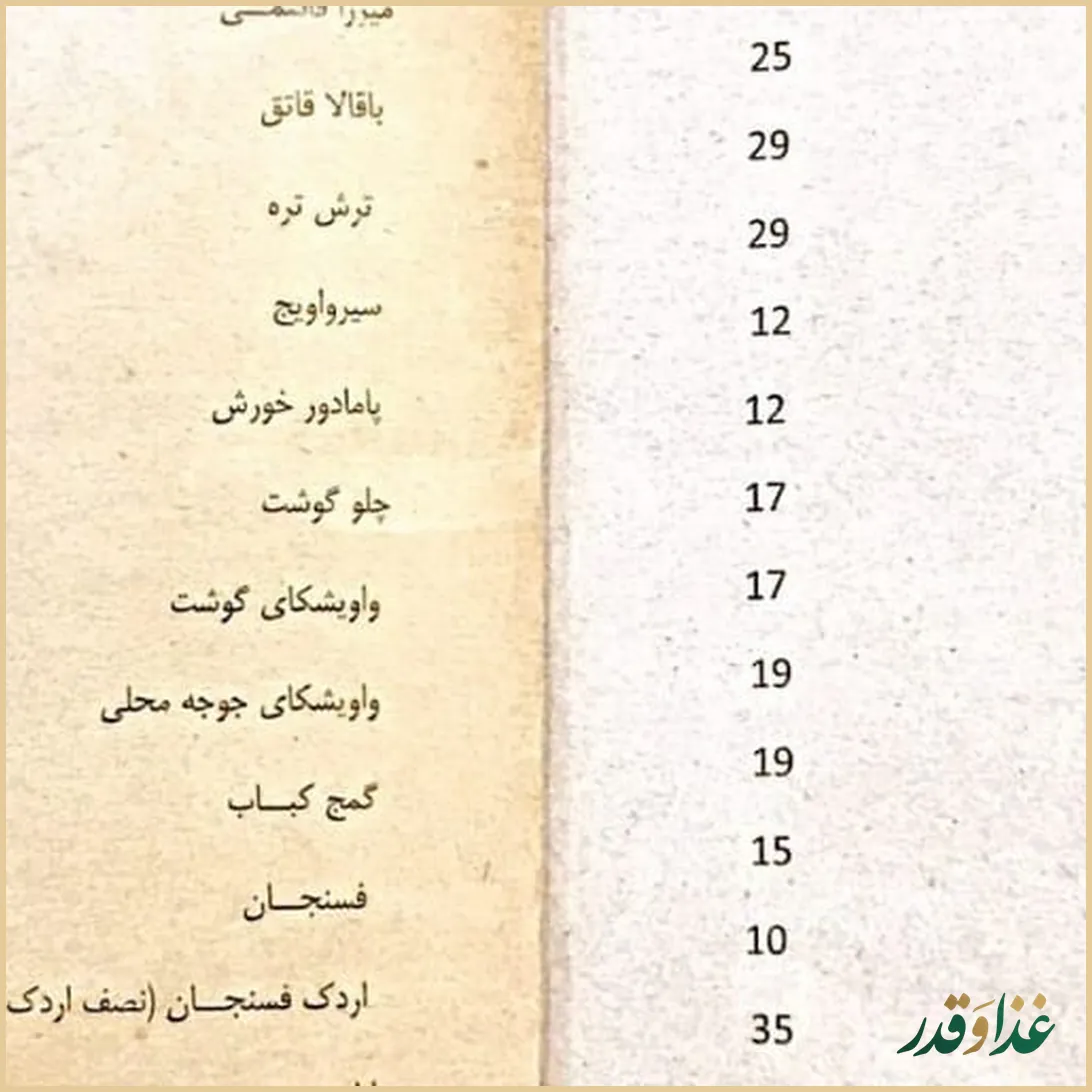 میرزا قاسمی
باقالا قاتق
ترش تره
سیرواویج
پامادور خورش
چلو گوشت
واویشکای گوشت
واویشکای جوجه محلی
گمج کبـاب
فسنجـان
اردک فسنجـان (نصف اردک
25
29
29
12
12
17
17
19
19
15
10
35
غذا و قدر